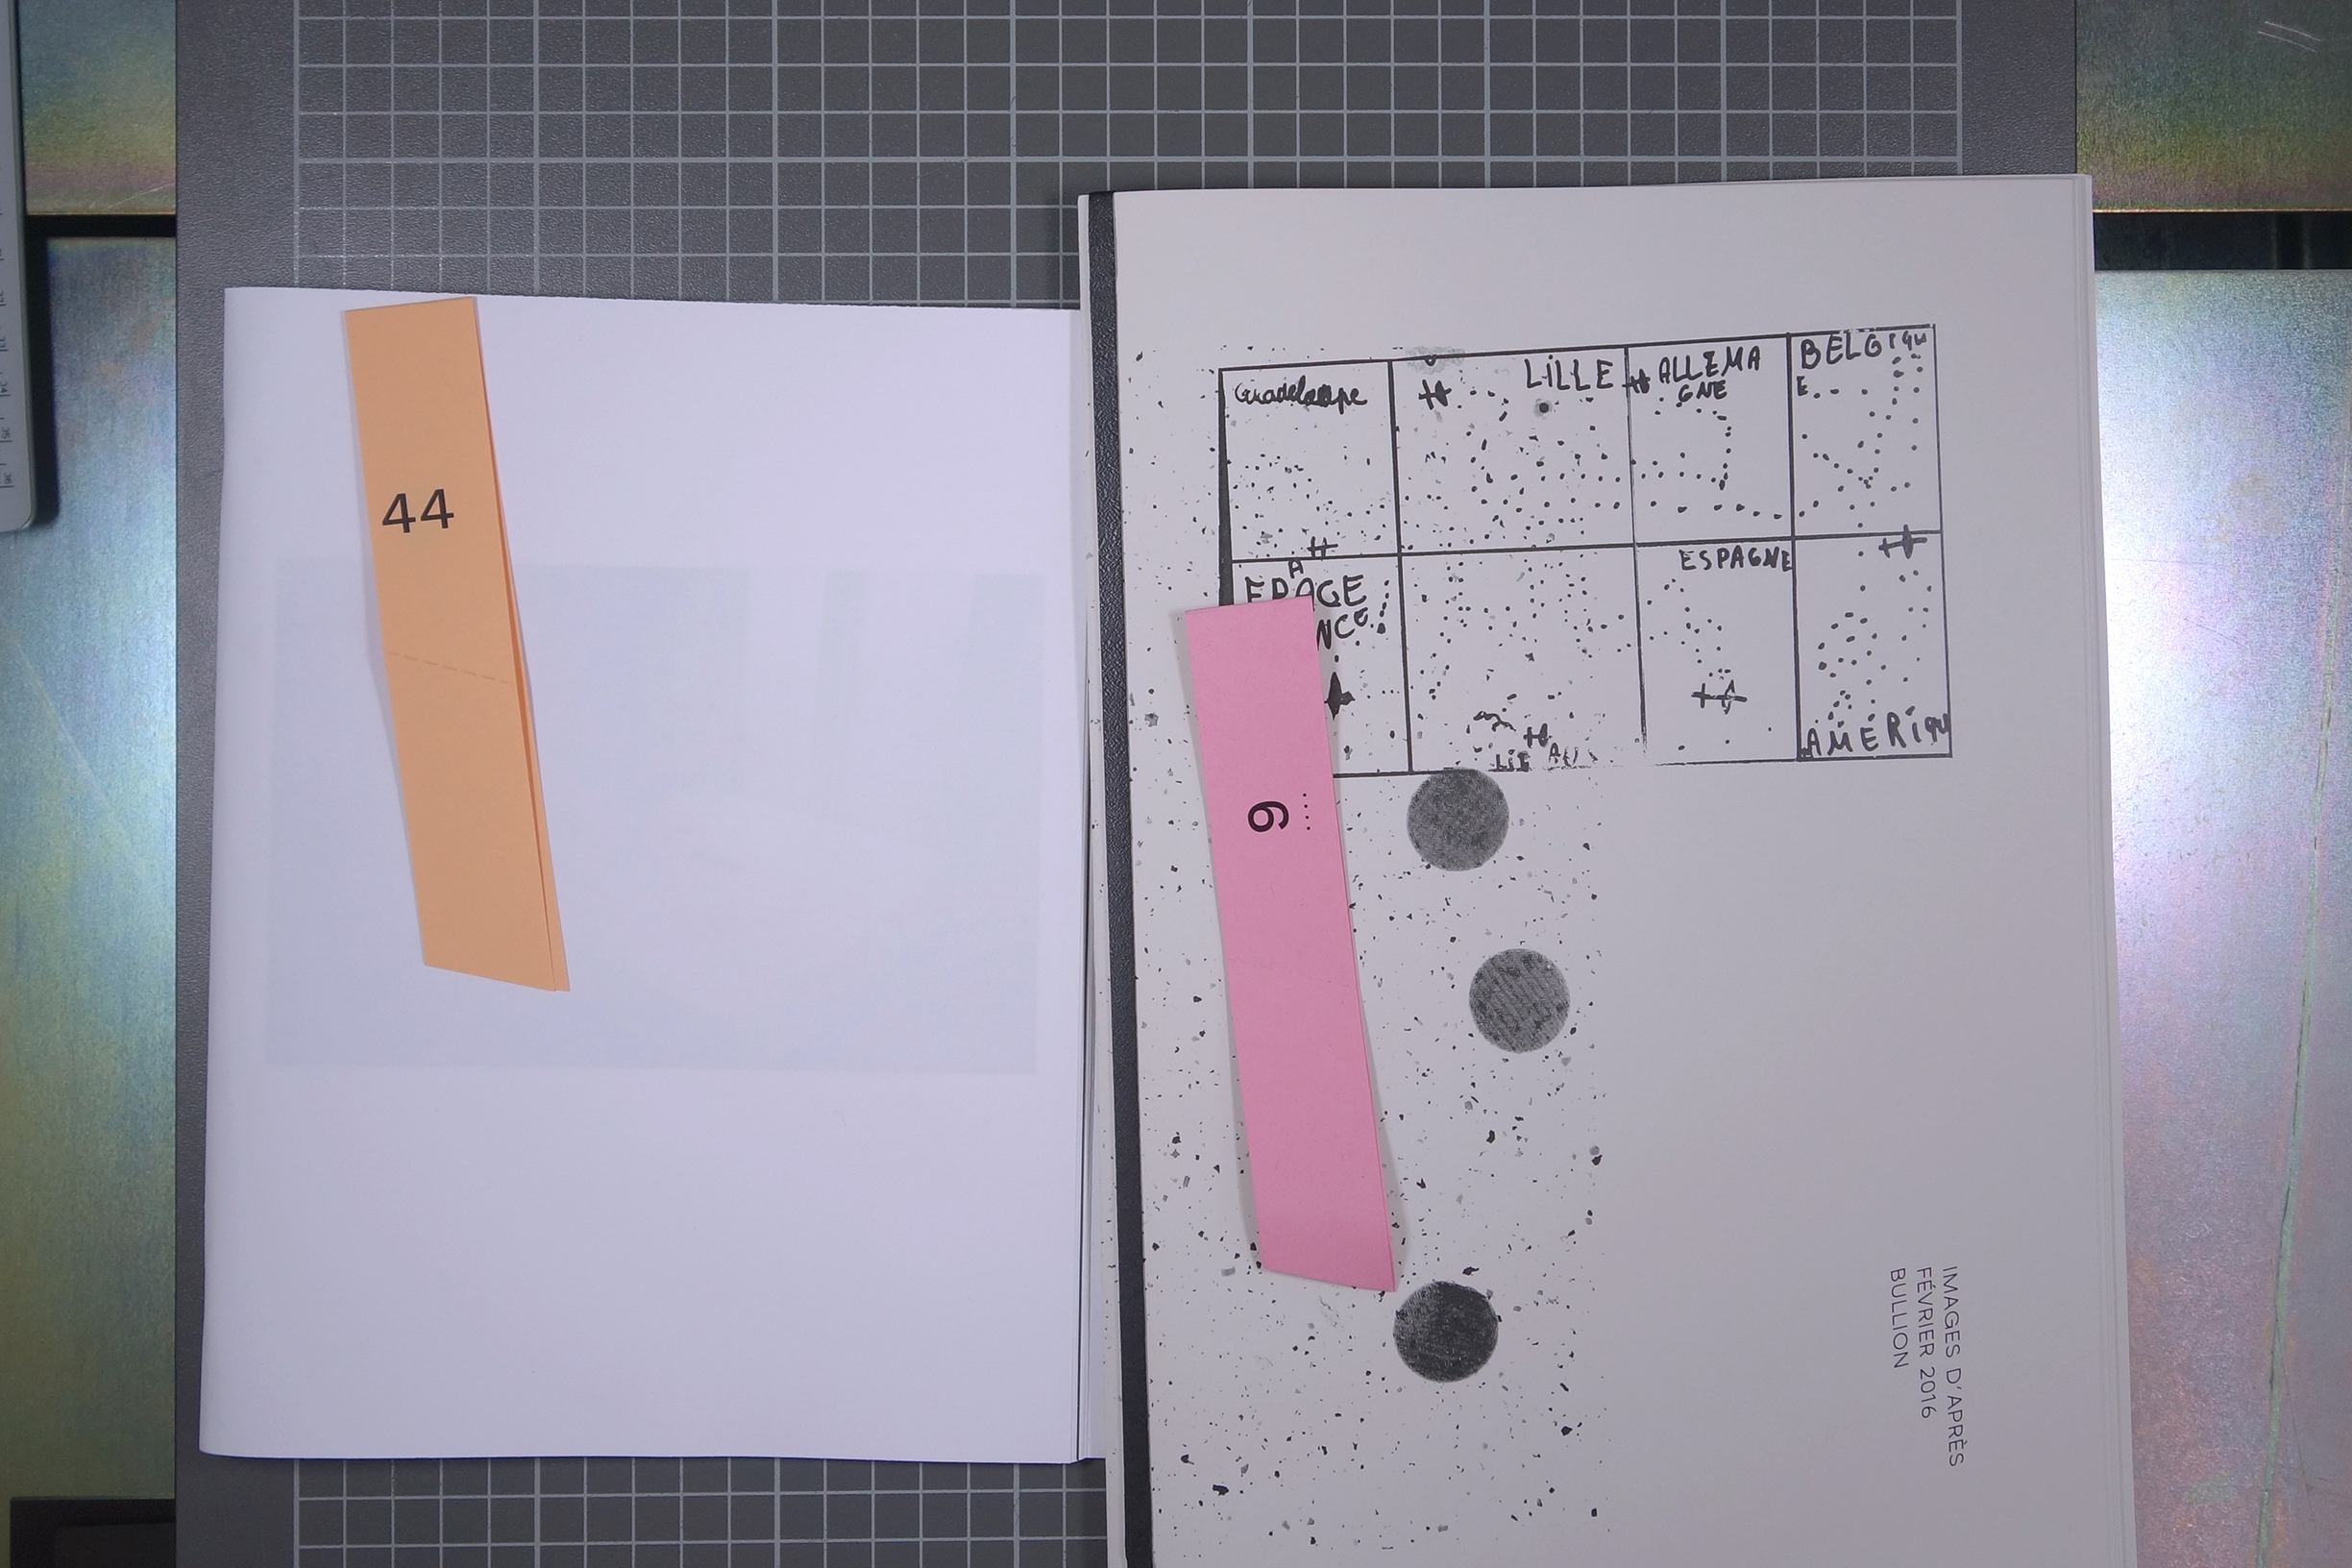 44
Guadeloupe
LiLLE
ALLEMA
GNE
BELGiQU
E
ESPAGNE
AMERiQU
6
IMAGES D'APRÈS
FÉVRIER 2016
BULLION